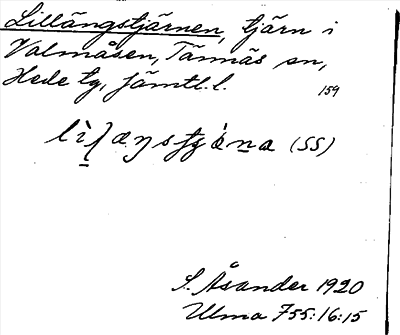 Lillängstjärnen, tjärn i
Valmåsen, Tännäs sn,
Hede tg, Jämtl. l.
159
(SS)
S. Åsander 1920
Ulma 755:16:15